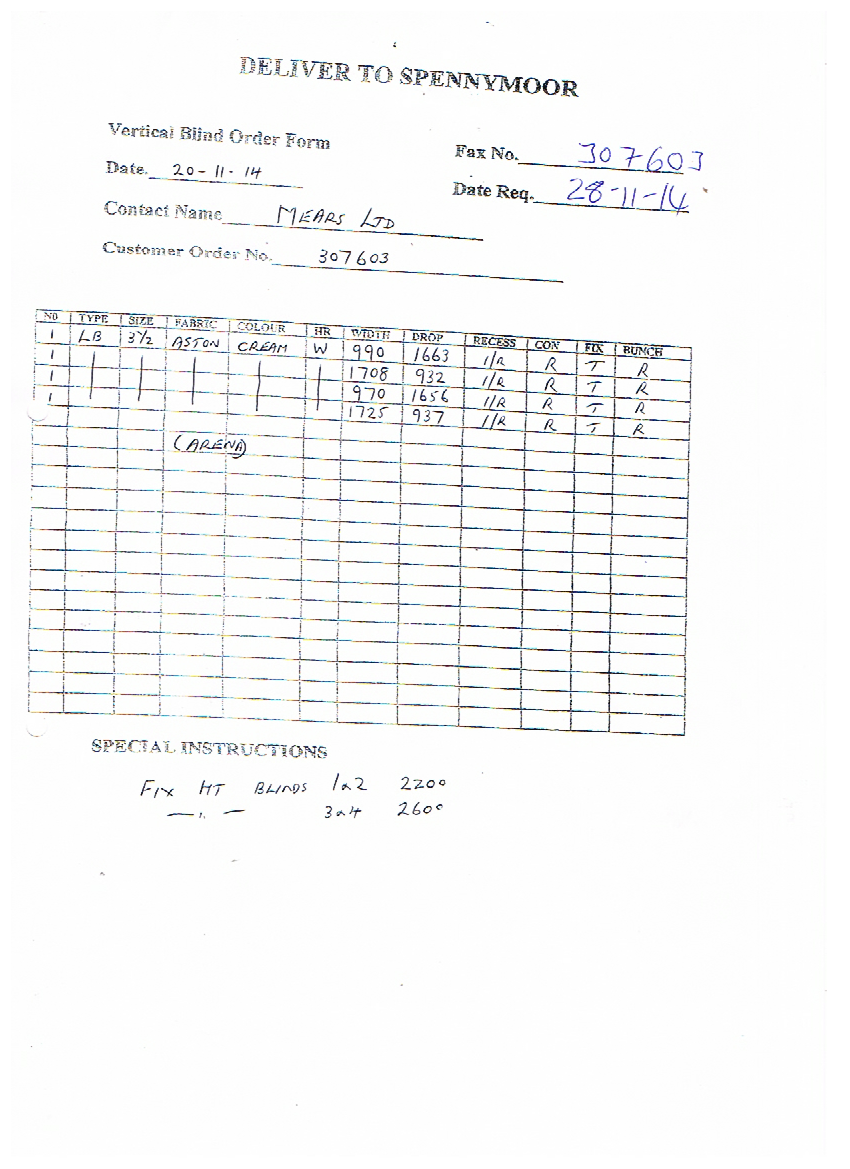 DELIVER TO SPENNYMOOR
Vertical Blind Order Form
Fax No. 307603
Date. 20-11-14
Date Req. 28-11-14
Contact Name MEARS LTD
Customer Order No. 307603
NO TYPE SIZE FABRIC COLOUR HR WIDTH DROP RECESS CON FIX BUNCH
1 LB 3½ ASTON CREAM W 990 1663 I/R R T R
1 | | | | | 1708 932 I/R R T R
1 | | | | | 970 1656 I/R R T R
1 1725 937 I/R R T R
(ARENA)
SPECIAL INSTRUCTIONS
FIX HT BLINDS 1&2 2200
— " — 3&4 2600